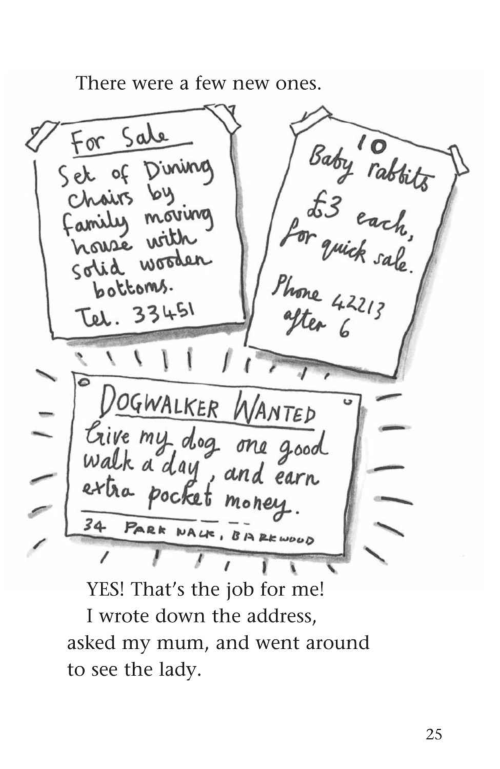 There were a few new ones.
For Sale
Set of Dining
Chairs by
family moving
house with
solid wooden
bottoms.
Tel. 33451
10
Baby rabbits
£3 each,
for quick sale.
Phone 42213
after 6
DOGWALKER WANTED
Give my dog one good
walk a day, and earn
extra pocket money.
34 PARK WALK, BARKWOOD
YES! That's the job for me!
I wrote down the address,
asked my mum, and went around
to see the lady.
25